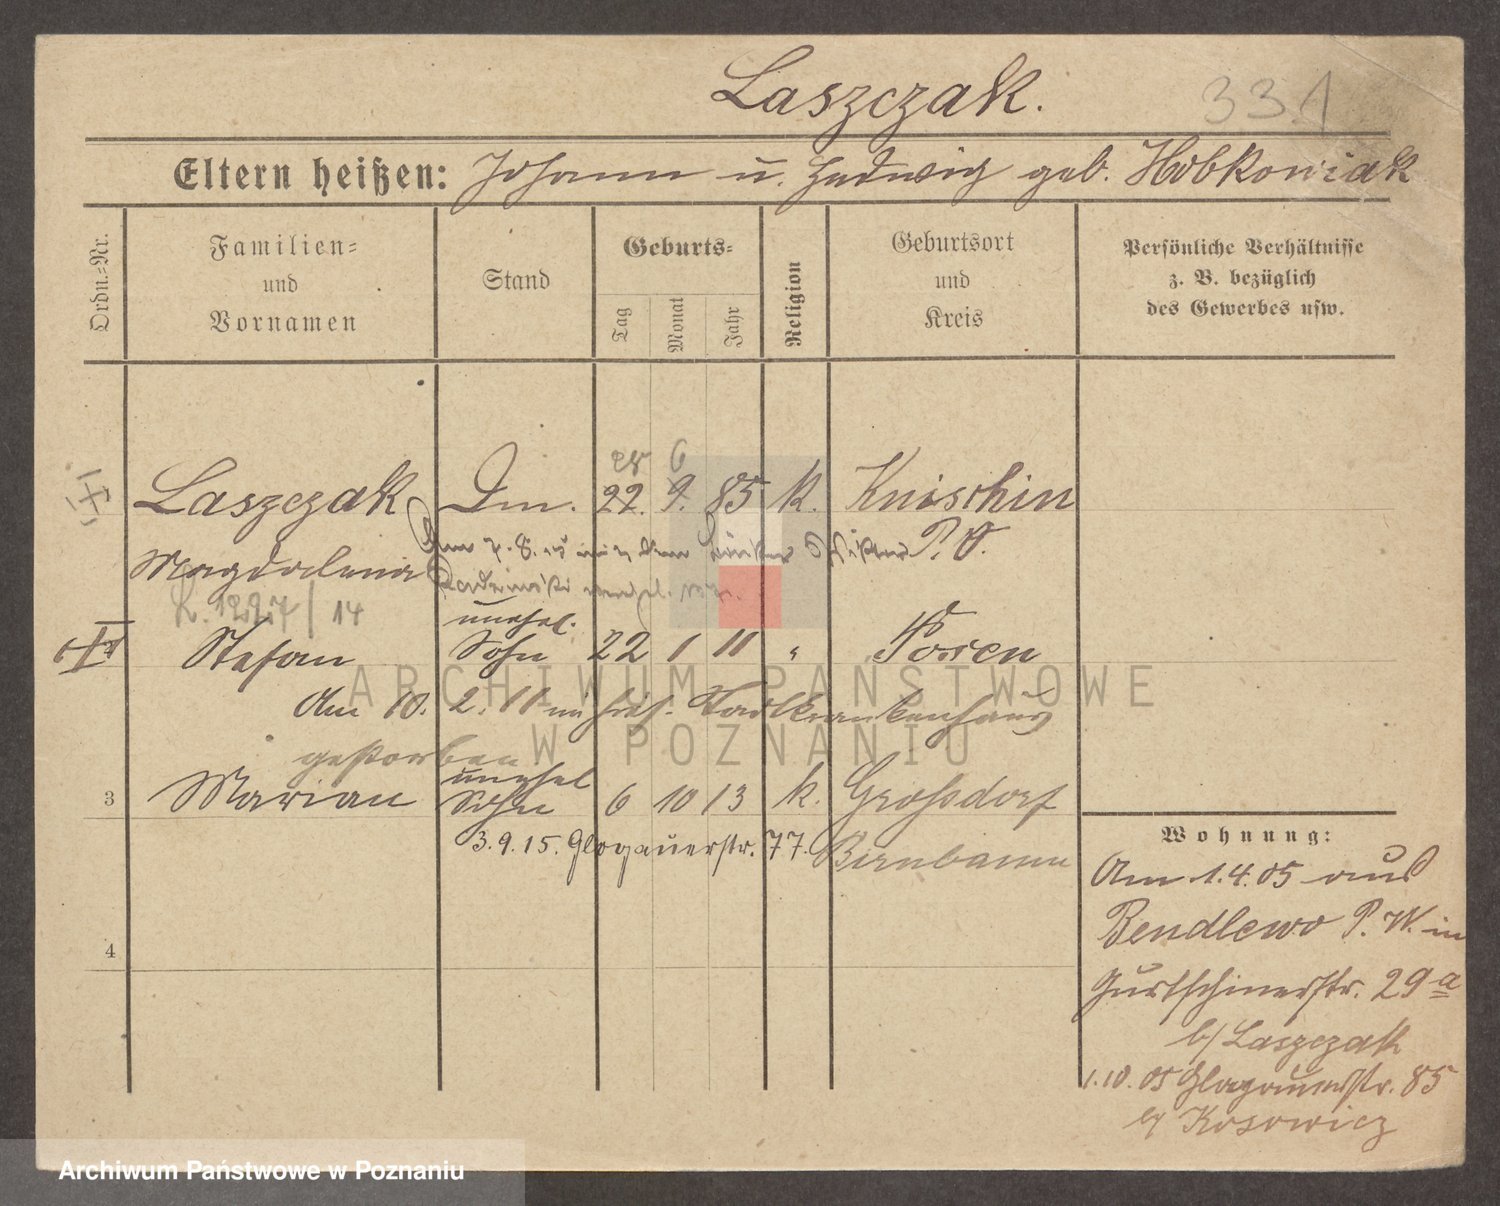 Laszczak.
331
Eltern heißen: Johann u. Hedwig geb. Hobkowiak
Ordn.-Nr.
Familien-
und
Vornamen
Stand
Geburts-
Tag
Monat
Jahr
Religion
Geburtsort
und
Kreis
Persönliche Verhältnisse
z. B. bezüglich
des Gewerbes usw.
28 6
Laszczak Dm. 22. 9. 85 k. Knischin
Magdalena P. O.
Am 7. 8. 15 mit dem
K. 1227/14
unehel.
Stefan Sohn 22 1 11 " Posen
Am 10. 2. 11 im hies. Stadtkrankenhaus
gestorben
unehel
3 Marian Sohn 6 10 13 k. Grossdorf
3.9.15. Glogauerstr. 77. Birnbaum
4
Wohnung:
Am 1.4.05 aus
Bendlewo P. W. in
Gurtschinerstr. 29a
b/ Laszczak
1.10.05 Glogauerstr. 85
b/ Kosowicz
ARCHIWUM PAŃSTWOWE
W POZNANIU
Archiwum Państwowe w Poznaniu